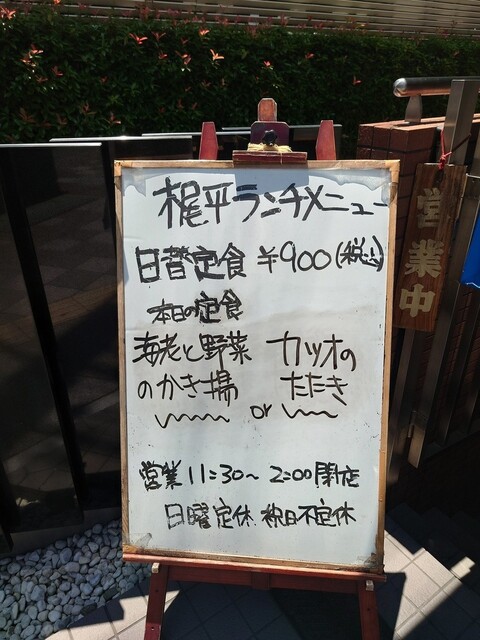 梶平ランチメニュー
日替定食 ¥900(税込)
本日の定食
海老と野菜 カツオの
のかき揚 たたき
or
営業 11:30〜2:00閉店
日曜定休 祝日不定休
営業中